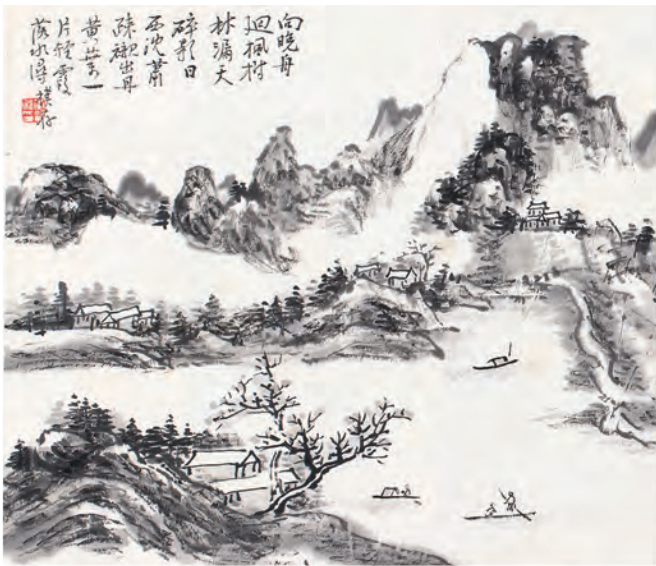 向晚舟
廻楓樹
林漏天
碎影日
西沈蕭
疎襯出丹
黄葉一
片輕霞
落水潯
樸存